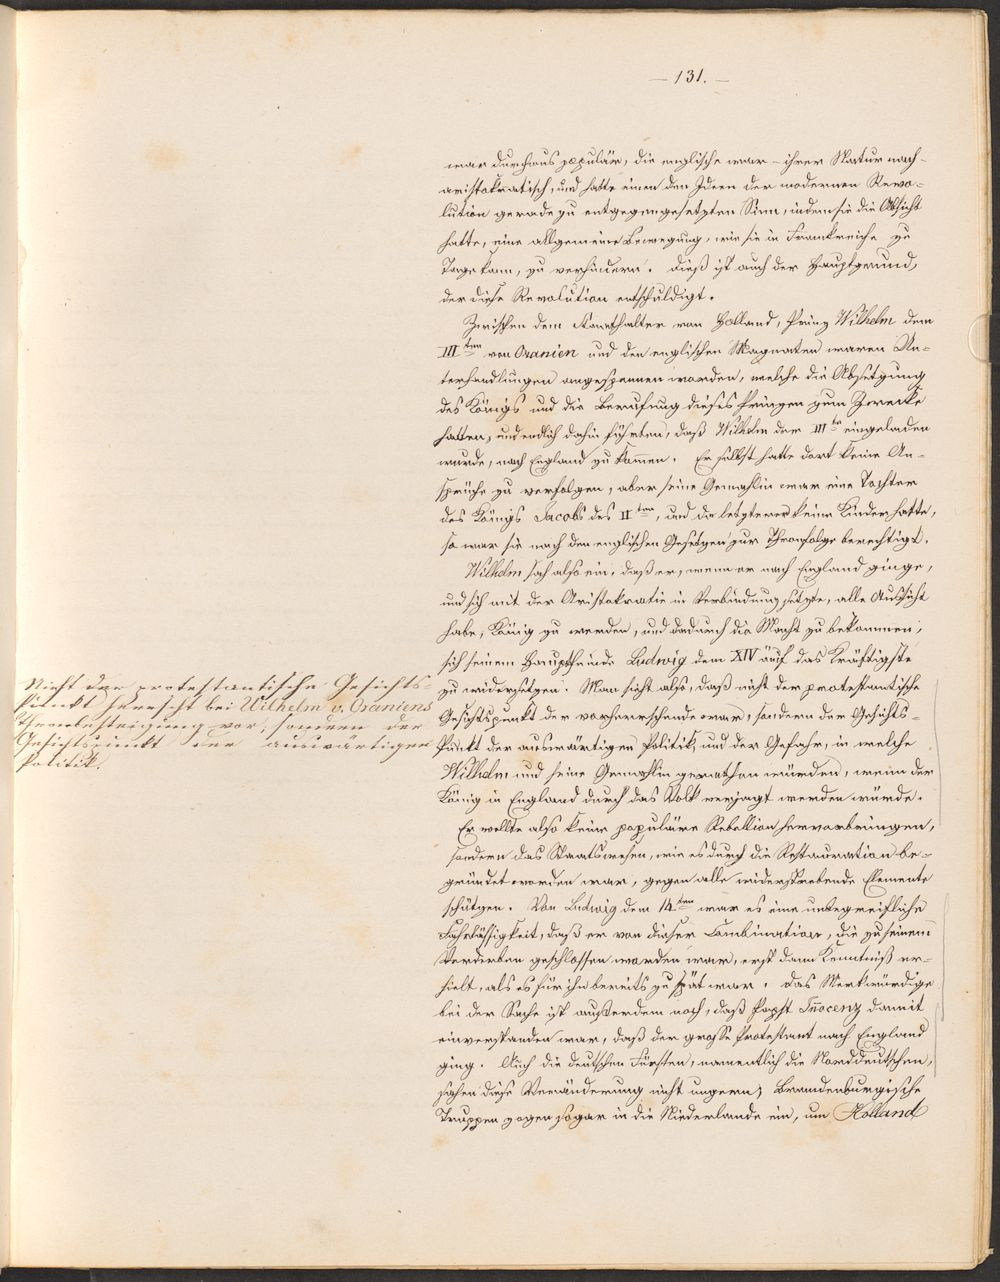 — 131. —
war durchaus populär, die englische war – ihrer Natur nach –
aristokratisch, und hatte einen den Ideen der modernen Revo-
lution gerade zu entgegengesetzten Sinn, indem sie die Absicht
hatte, eine allgemeine Bewegung, wie sie in Frankreich zu
Tage kam, zu verhindern. Dieß ist auch der Hauptgrund,
der diese Revolution entschuldigt.
Zwischen dem Statthalter von Holland, Prinz Wilhelm dem
III ten von Oranien und den englischen Magnaten waren Un-
terhandlungen angesponnen worden, welche die Absetzung
des Königs und die Berufung dieses Prinzen zum Zwecke
hatten, und endlich dahin führten, daß Wilhelm der III te eingeladen
wurde, nach England zu kommen. Er selbst hatte dort keine An-
sprüche zu verfolgen, aber seine Gemahlin war eine Tochter
des Königs Jacobs des II ten, und da letzterer keine Kinder hatte,
so war sie nach den englischen Gesetzen zur Thronfolge berechtigt.
Wilhelm sah also ein, daß er, wenn er nach England ginge,
und sich mit der Aristokratie in Verbindung setzte, alle Aussicht
habe, König zu werden, und dadurch die Macht zu bekommen,
sich seinem Hauptfeinde Ludwig dem XIV auf das Kräftigste
zu widersetzen. Man sieht also, daß nicht der protestantische
Gesichtspunkt der vorherrschende war, sondern der Gesichts-
punkt der auswärtigen Politik, und der Gefahr, in welche
Wilhelm und seine Gemahlin gerathen würden, wenn der
König in England durch das Volk verjagt werden würde.
Nicht der protestantische Gesichts-
punkt herrscht bei Wilhelm v. Oraniens
Thronbesteigung vor, sondern der
Gesichtspunkt der auswärtigen
Politik.
Er wollte also keine populäre Rebellion hervorbringen,
sondern das Staatswesen, wie es durch die Restauration be-
gründet worden war, gegen alle widerstrebende Elemente
schützen. Von Ludwig dem 14 ten war es eine unbegreifliche
Fahrlässigkeit, daß er von dieser Combination, die zu seinem
Verderben geschlossen worden war, erst dann Kenntniß er-
hielt, als es für ihn bereits zu spät war. Das Merkwürdige
bei der Sache ist außerdem noch, daß Papst Innocenz damit
einverstanden war, daß der große Protestant nach England
ging. Auch die deutschen Fürsten, namentlich die Norddeutschen,
sahen diese Veränderung nicht ungern; Brandenburgische
Truppen zogen sogar in die Niederlande ein, um Holland